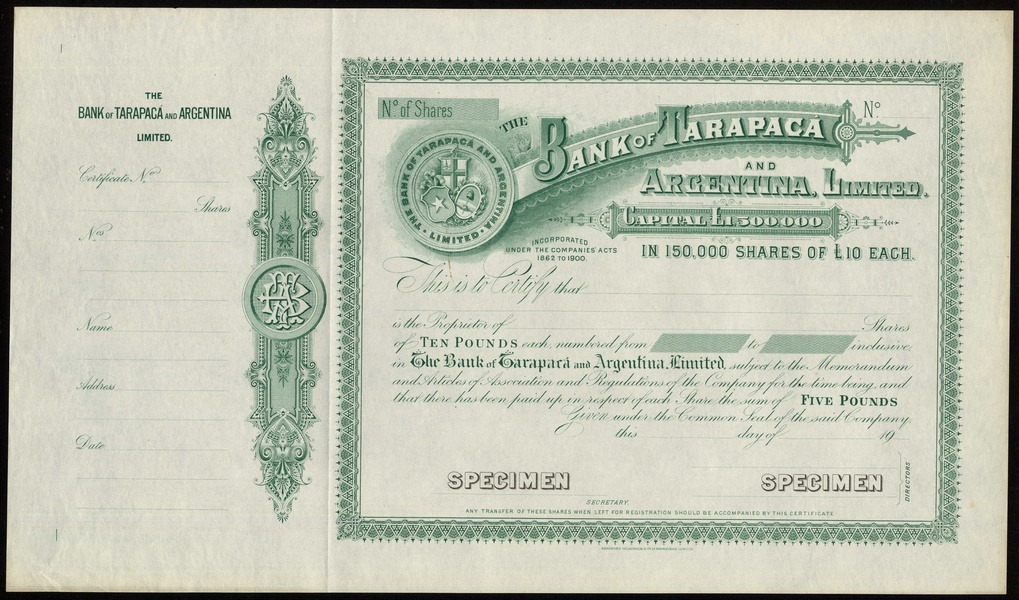 THE
BANK OF TARAPACÁ AND ARGENTINA
LIMITED.
Certificate No
Shares
Nos
Name
Address
Date
No of Shares
No
THE BANK OF TARAPACÁ
AND
ARGENTINA, LIMITED.
CAPITAL £1500000
IN 150,000 SHARES OF £10 EACH.
THE BANK OF TARAPACÁ AND ARGENTINA LIMITED
INCORPORATED
UNDER THE COMPANIES' ACTS
1862 TO 1900.
This is to Certify that
is the Proprietor of Shares
of TEN POUNDS each, numbered from to inclusive,
in The Bank of Tarapacá and Argentina, Limited, subject to the Memorandum
and Articles of Association and Regulations of the Company for the time being, and
that there has been paid up in respect of each Share the sum of FIVE POUNDS
Given under the Common Seal of the said Company
this day of 19
SPECIMEN
SPECIMEN
DIRECTORS
SECRETARY.
ANY TRANSFER OF THESE SHARES WHEN LEFT FOR REGISTRATION SHOULD BE ACCOMPANIED BY THIS CERTIFICATE